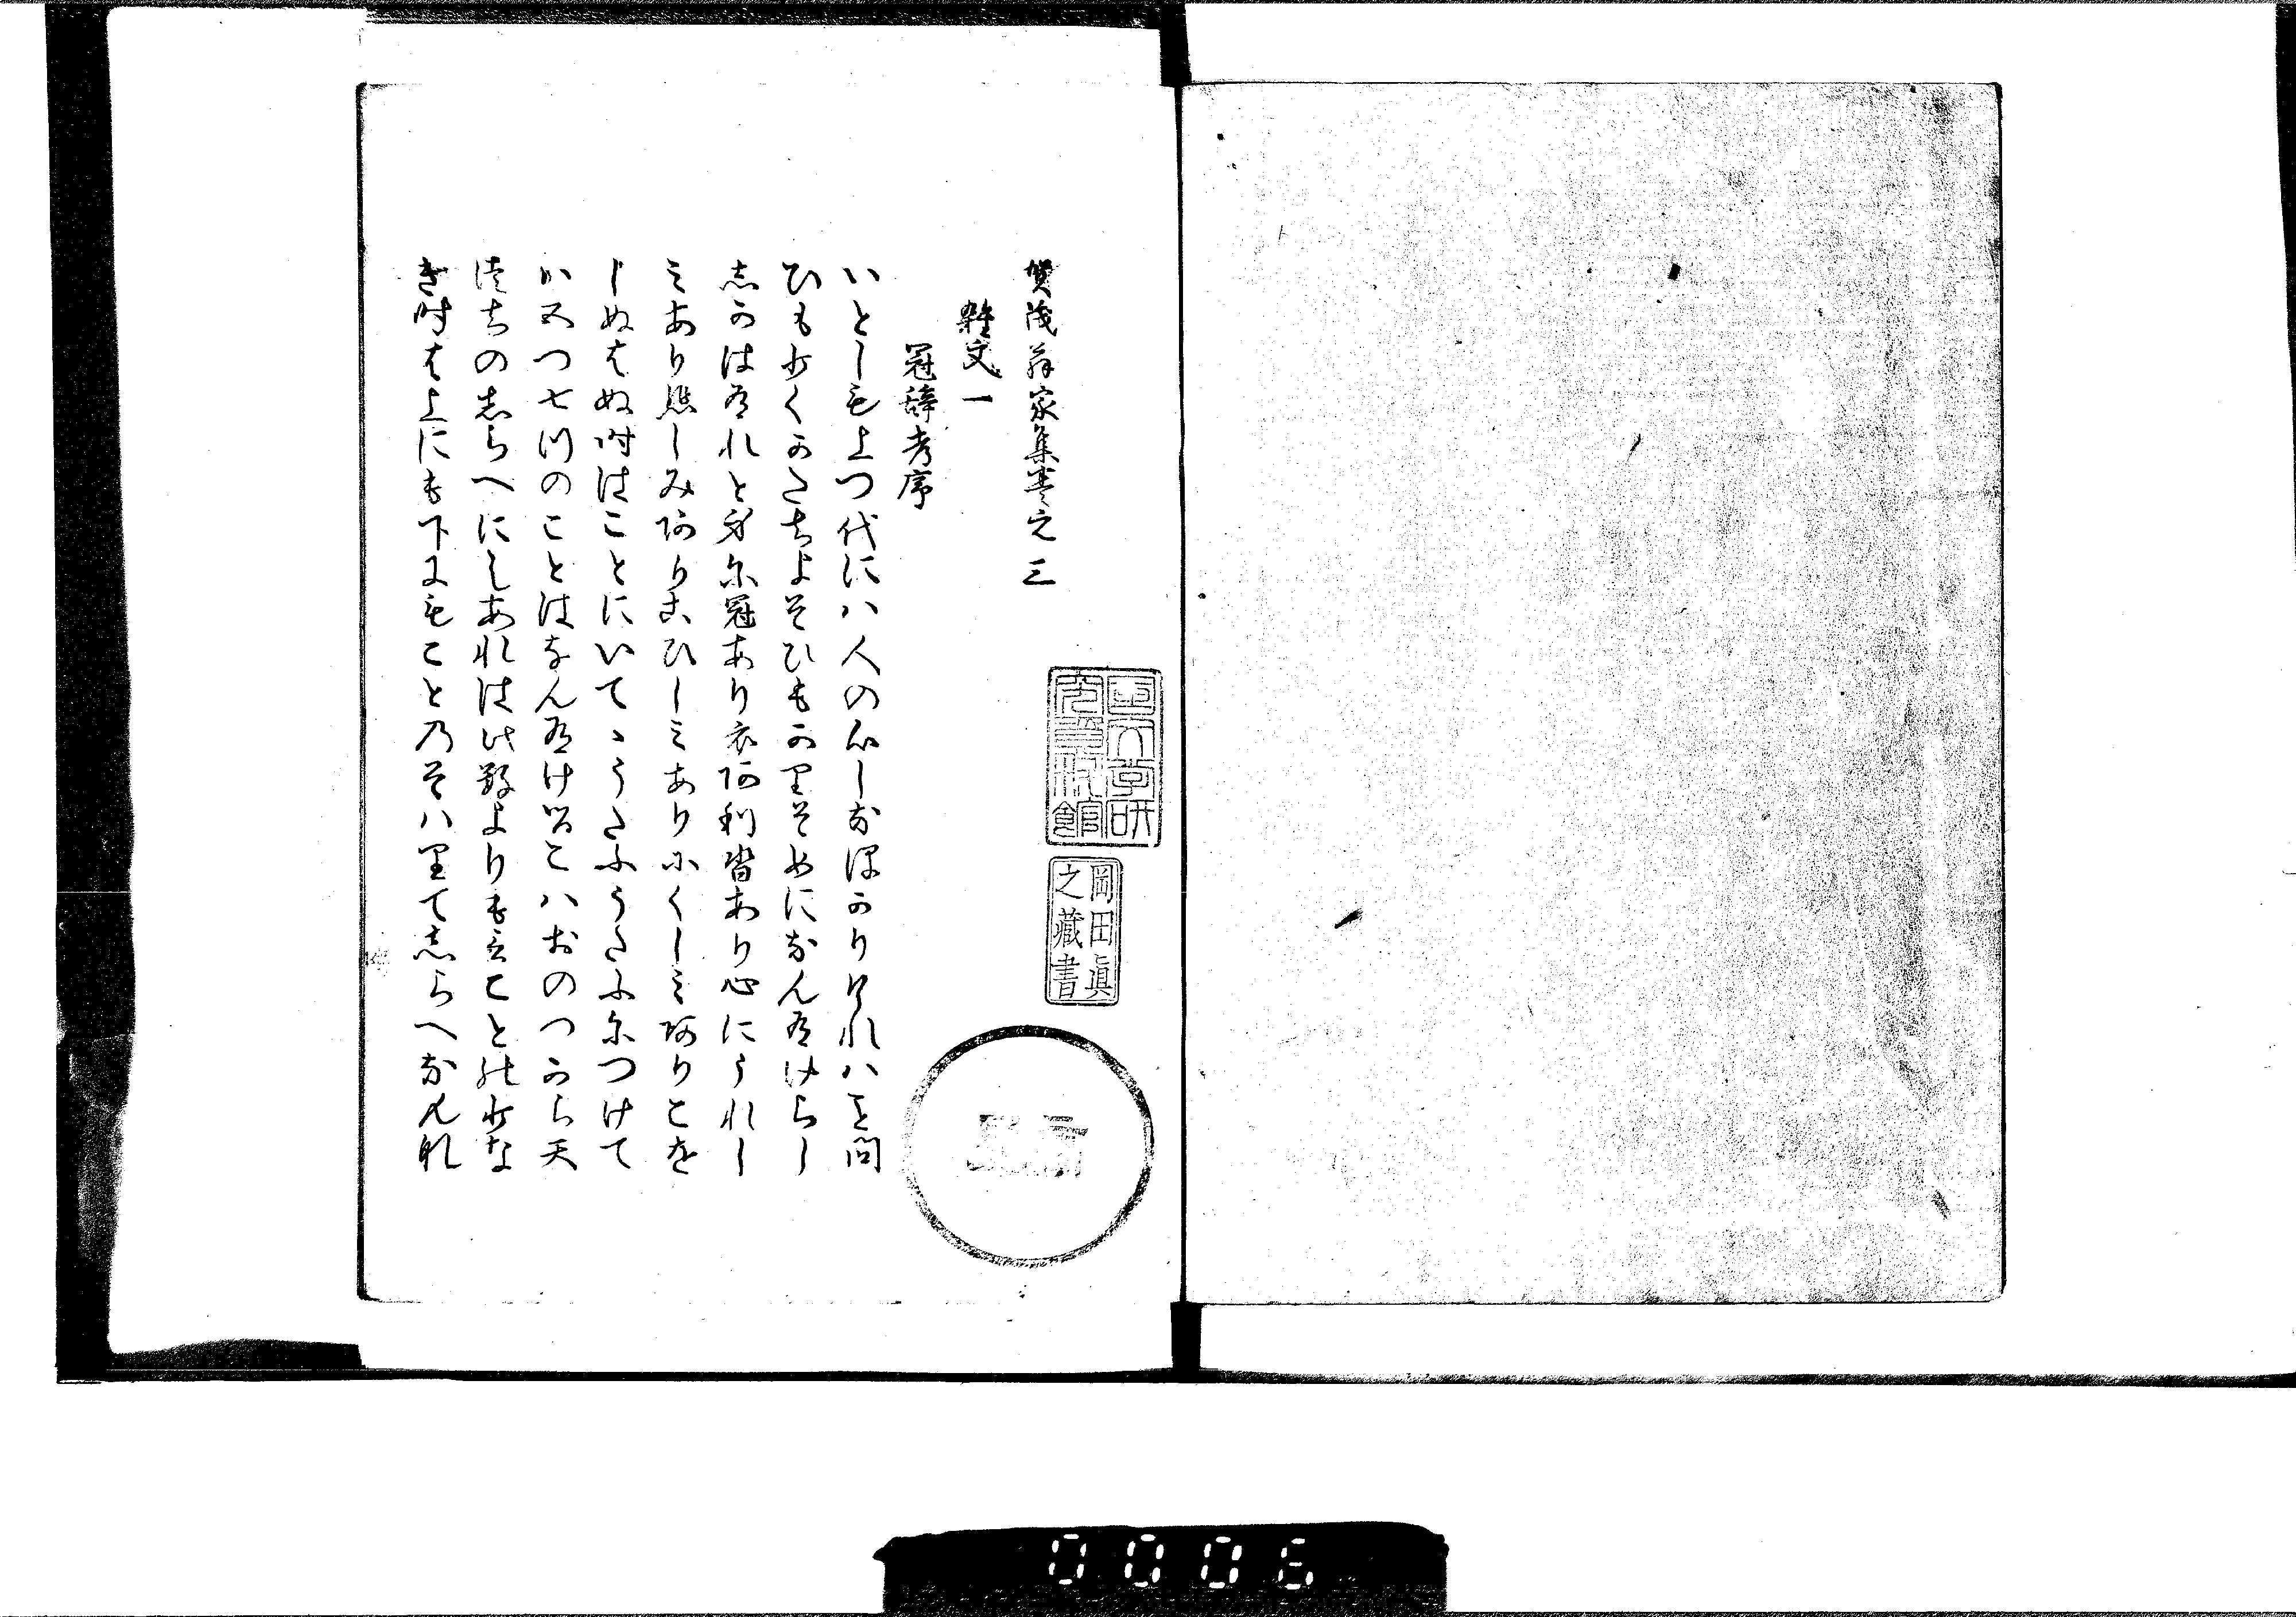 賀茂翁家集巻之三
雑文一
冠辞考序
いとしも上つ代にハ人の心しなほかりけれハこと問
ひも少くかたちよそひもかりそめになん有けらし
志かは有れと身に冠あり衣あり沓あり心にうれし
ミあり悲しみありこひしミありにくしミありこを
しぬはぬ時はことにいてゝうたふうたふにつけて
か五つ七つのことはなん有けるこハおのつから天
つちの志らへにしあれは此数よりも言ことの少な
き時は上にも下にもことのそハりて志らへなんなれ
国文学研究資料館
岡田眞之藏書
0006